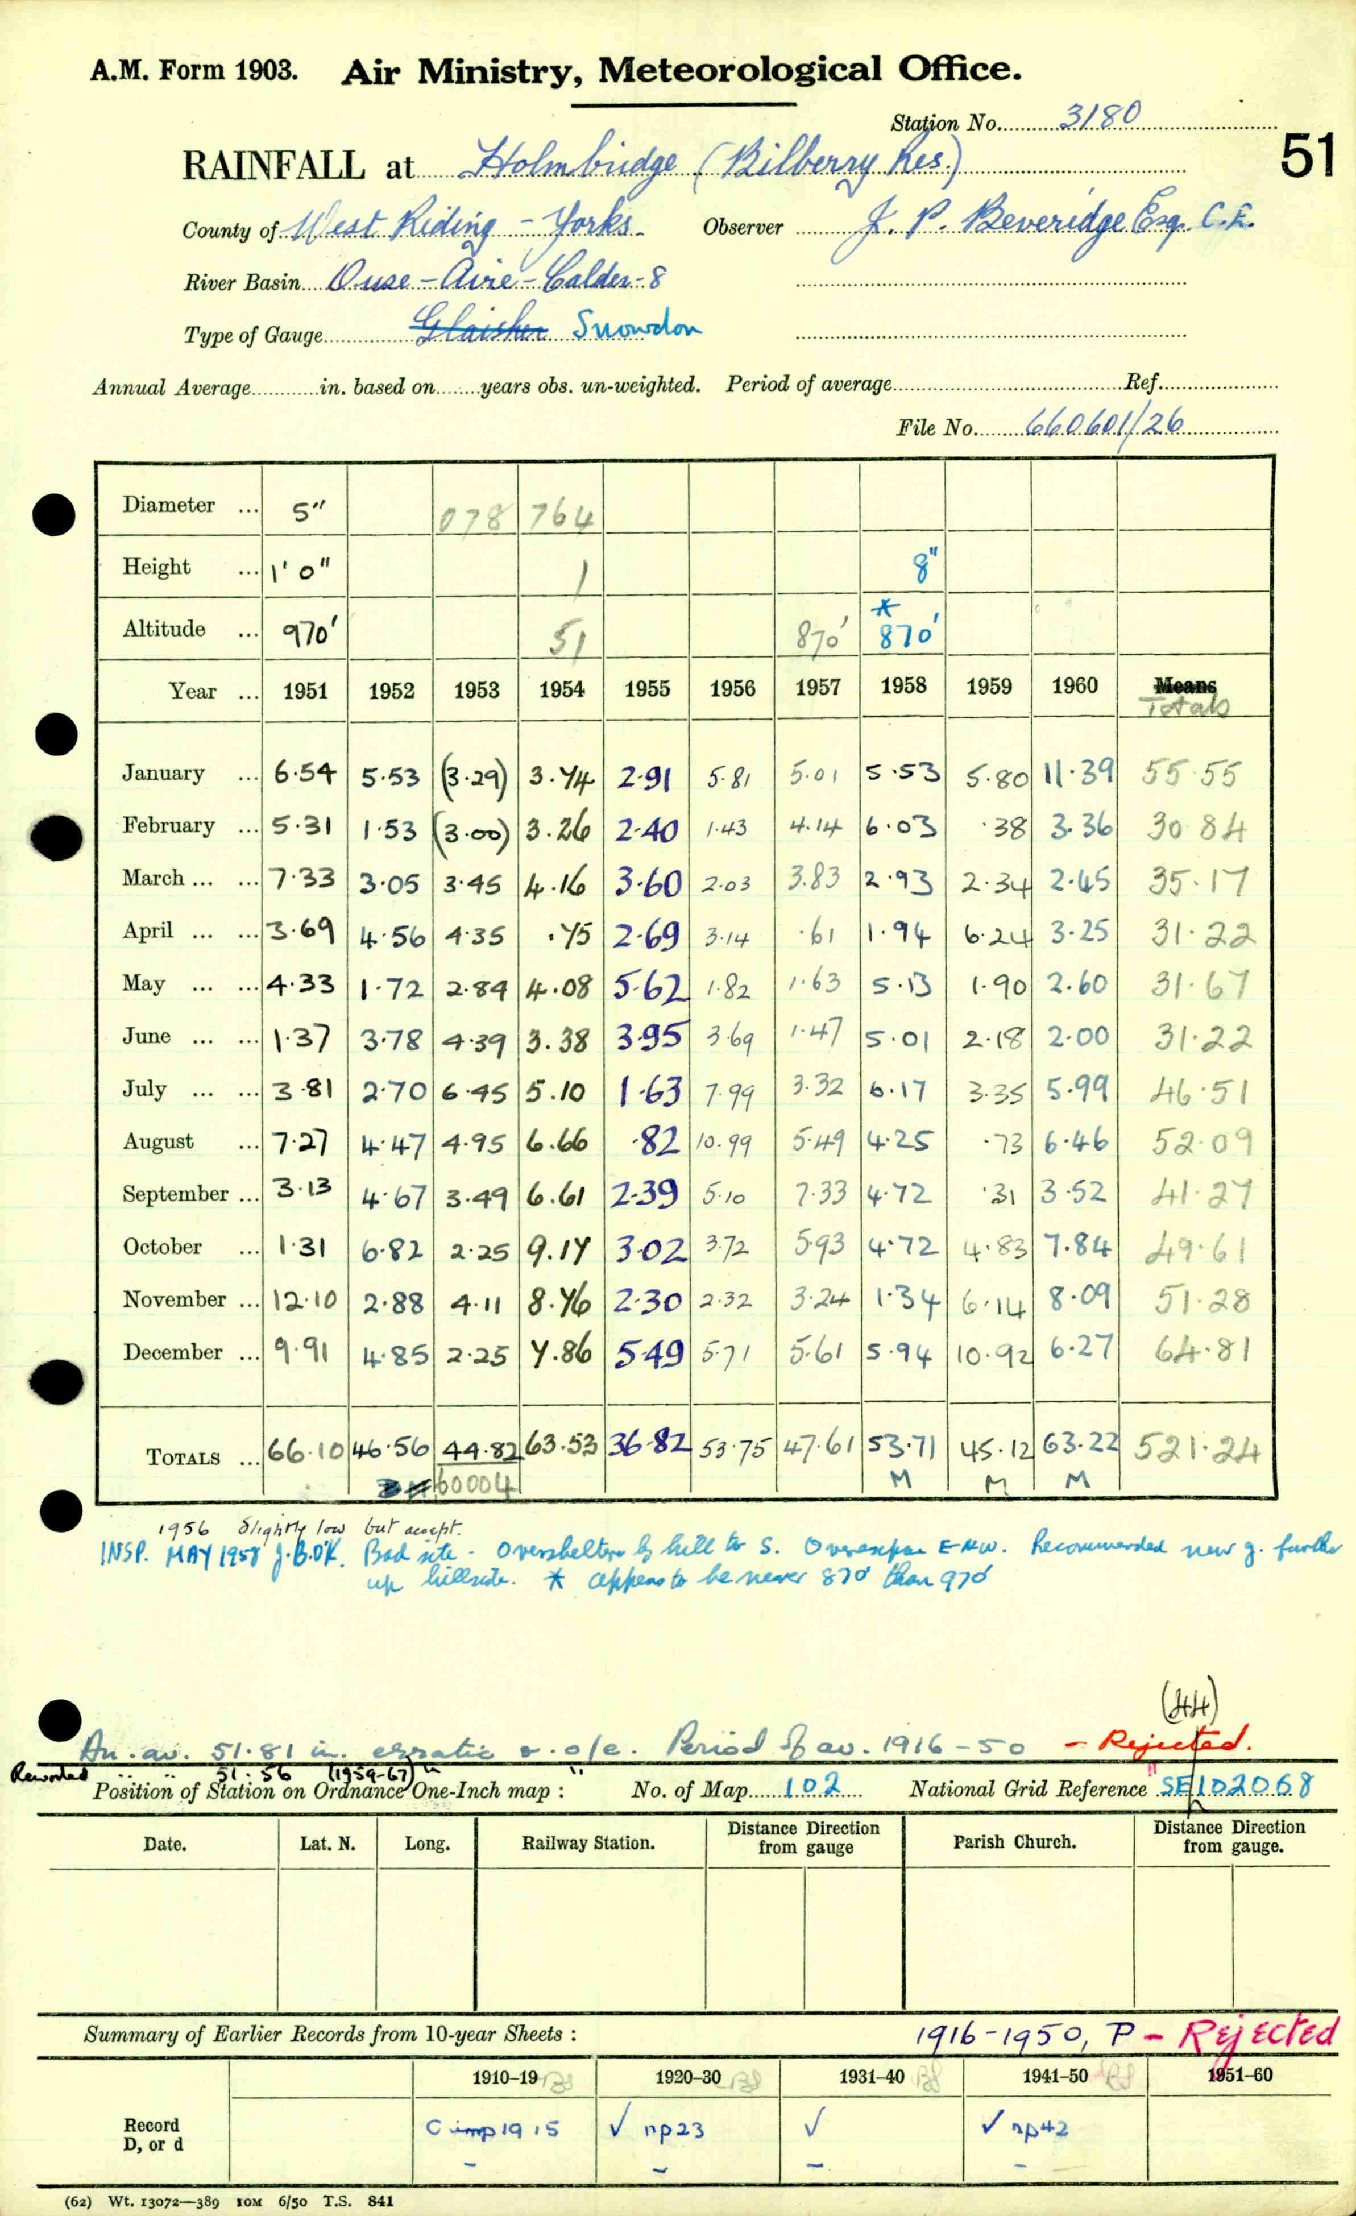 A.M. Form 1903. Air Ministry, Meteorological Office.
Station No. 3180
51
RAINFALL at Holmbridge (Bilberry Res.)
County of West Riding - Yorks. Observer J. P. Beveridge Esq. C.E.
River Basin Ouse - Aire - Calder - 8
Type of Gauge Glaisher Snowdon
Annual Average in. based on years obs. un-weighted. Period of average Ref.
File No. 660601/26
Diameter ... 5" 078 764
Height ... 1' 0" 1 8"
Altitude ... 970' 51 870' * 870'
Year ... 1951 1952 1953 1954 1955 1956 1957 1958 1959 1960 Means Totals
January ... 6.54 5.53 (3.29) 3.74 2.91 5.81 5.01 5.53 5.80 11.39 55.55
February ... 5.31 1.53 (3.00) 3.26 2.40 1.43 4.14 6.03 .38 3.36 30.84
March ... ... 7.33 3.05 3.45 4.16 3.60 2.03 3.83 2.93 2.34 2.45 35.17
April ... ... 3.69 4.56 4.35 .75 2.69 3.14 .61 1.94 6.24 3.25 31.22
May ... ... 4.33 1.72 2.84 4.08 5.62 1.82 1.63 5.13 1.90 2.60 31.67
June ... ... 1.37 3.78 4.39 3.38 3.95 3.69 1.47 5.01 2.18 2.00 31.22
July ... ... 3.81 2.70 6.45 5.10 1.63 7.99 3.32 6.17 3.35 5.99 46.51
August ... 7.27 4.47 4.95 6.66 .82 10.99 5.49 4.25 .73 6.46 52.09
September ... 3.13 4.67 3.49 6.61 2.39 5.10 7.33 4.72 .31 3.52 41.27
October ... 1.31 6.82 2.25 9.17 3.02 3.72 5.93 4.72 4.83 7.84 49.61
November ... 12.10 2.88 4.11 8.76 2.30 2.32 3.24 1.34 6.14 8.09 51.28
December ... 9.91 4.85 2.25 7.86 5.49 5.71 5.61 5.94 10.92 6.27 64.81
TOTALS ... 66.10 46.56 44.82 63.53 36.82 53.75 47.61 53.71 45.12 63.22 521.24
60004 M M M
1956 Slightly low but accept.
INSP. MAY 1958 J.B.O'K. Bad site - Overshelter by hill to S. E & W. Recommended new g. further
up hillside. * appears to be nearer 870' than 970'
(44)
An. av. 51.81 in. erratic o/e. Period of av. 1916-50 - Rejected.
Reworked " " 51.56 (1959-67) "
Position of Station on Ordnance One-Inch map : No. of Map 102 National Grid Reference SE 102068
Date. Lat. N. Long. Railway Station. Distance from gauge Direction Parish Church. Distance from gauge. Direction
Summary of Earlier Records from 10-year Sheets : 1916-1950, P - Rejected
1910-19 1920-30 1931-40 1941-50 1951-60
Record D, or d C 1915 ✓ np23 ✓ ✓ np42
- - - -
(62) Wt. 13072—389 10M 6/50 T.S. 841